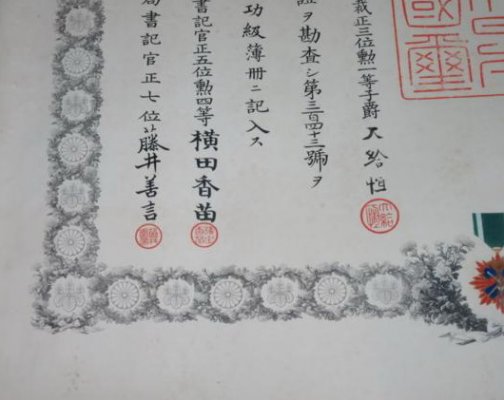 裁正三位勲一等子爵大給恒
證ヲ勘査シ第三百四十三號ヲ
功級簿册ニ記入ス
書記官正五位勲四等横田香苗
局書記官正七位藤井善言